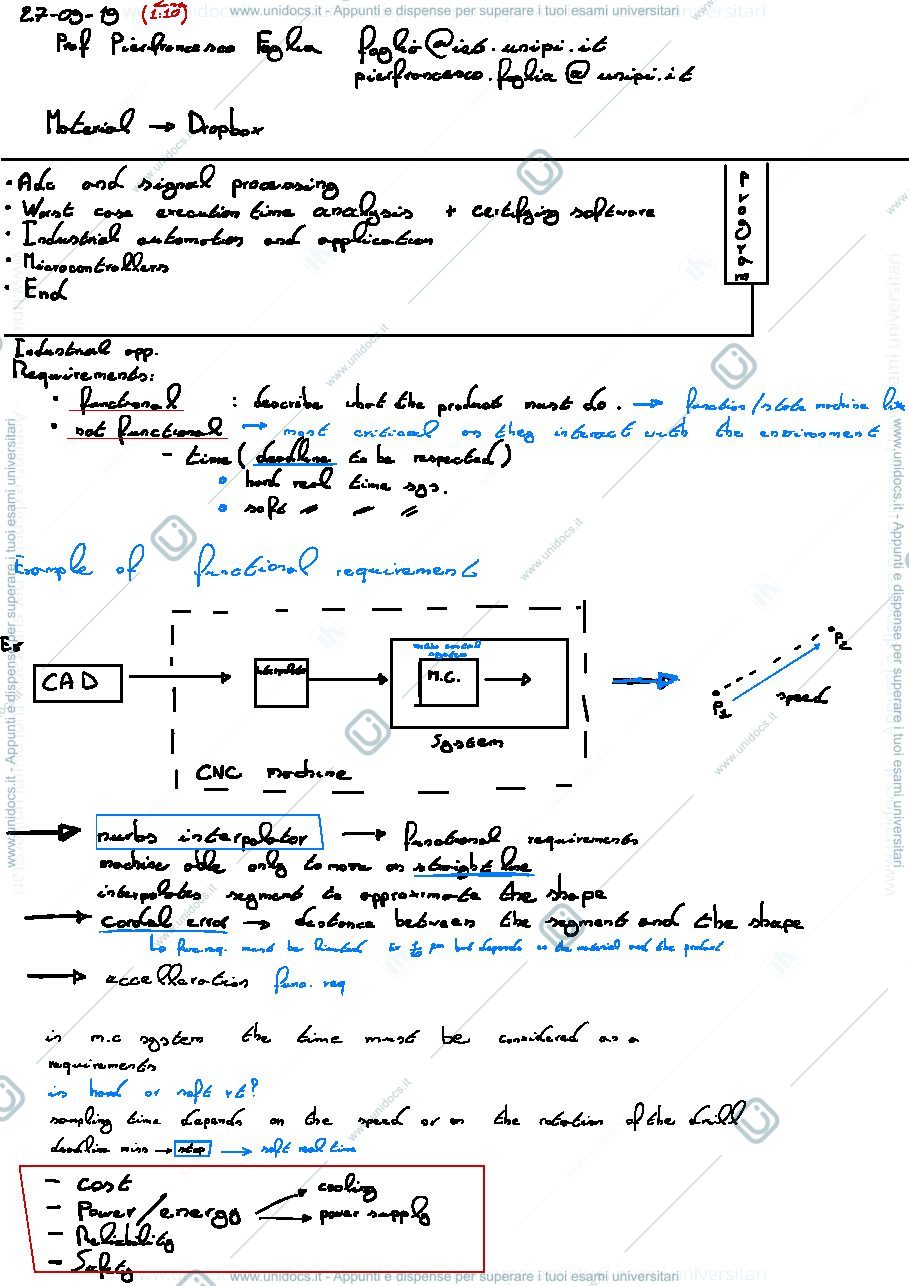 www.unidocs.it - Appunti e dispense per superare i tuoi esami universitari
27-09-19 (1:10)
Prof Pierfrancesco Foglia foglia@iet.unipi.it
pierfrancesco.foglia@unipi.it
Material → Dropbox
Program
• Adc and signal processing
• Worst case execution time analysis + certifying software
• Industrial automation and application
• Microcontrollers
• End
Industrial app.
Requirements:
• functional : describe what the product must do. → function/state machine like
• not functional → most critical as they interact with the environment
- time (deadline to be respected)
• hard real time sys.
• soft " " "
Example of functional requirement
Ex
CAD
interpolator
motion control system
M.C.
System
CNC machine
P1
P2
speed
→ nurbs interpolator → functional requirements
machine able only to move on straight line
interpolates segment to approximate the shape
→ cordal error → distance between the segment and the shape
↳ func. req. must be limited to 1/10 µm but depends on the material and the product
→ accelleration func. req
in m.c system the time must be considered as a
requirements
in hard or soft rt?
sampling time depends on the speed or on the rotation of the drill
deadline miss → stop → soft real time
- cost
- Power/energy → cooling
→ power supply
- Reliability
- Safety
www.unidocs.it - Appunti e dispense per superare i tuoi esami universitari